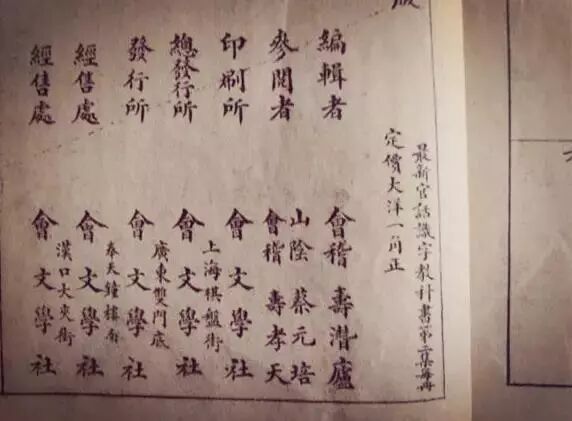 版
最新官話識字教科書第二集每冊
定價大洋一角正
編輯者 會稽 壽潛廬
參閱者 山陰 蔡元培
會稽 壽孝天
印刷所 會文學社
總發行所 上海棋盤街
會文學社
發行所 廣東雙門底
會文學社
經售處 奉天鐘樓南
會文學社
經售處 漢口大夾街
會文學社